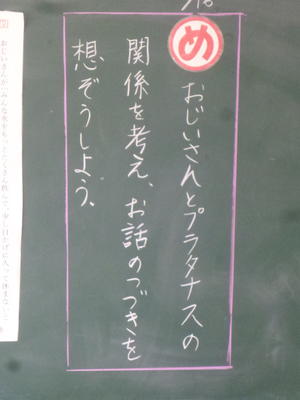 め
おじいさんとプラタナスの
関係を考え、お話のつづきを
想ぞうしよう。